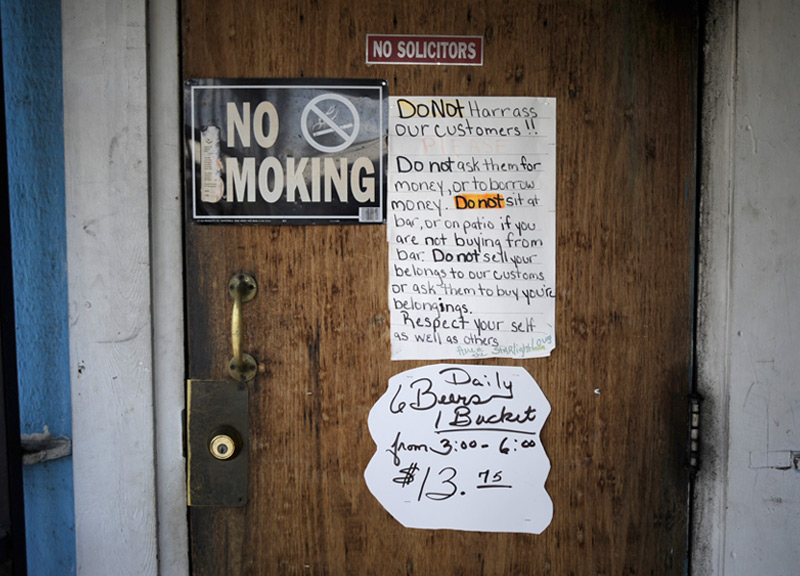 NO SOLICITORS
NO
SMOKING
DoNot Harrass
our customers!!
PLEASE
Do not ask them for
money, or to borrow
money. Do not sit at
bar, or on patio if you
are not buying from
bar. Do not sell your
belongs to our customs
or ask them to buy you're
belongings.
Respect your self
as well as others
Starlight Lounge
Daily
6 Beers
1 Bucket
from 3:00 - 6:00
$13.75